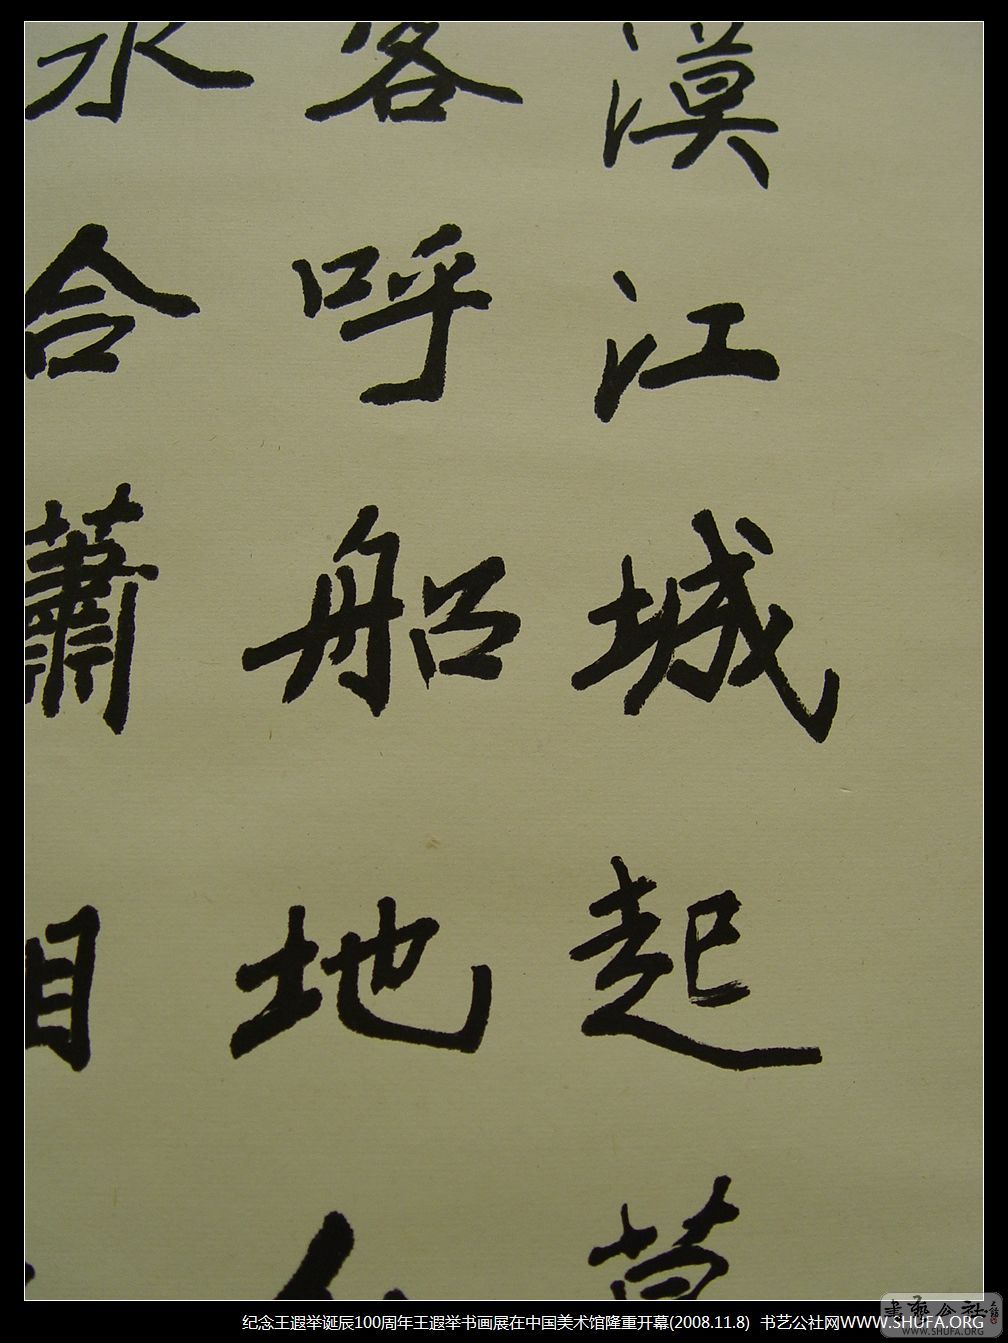 漠江城起
客呼船地
水合蕭
纪念王遐举诞辰100周年王遐举书画展在中国美术馆隆重开幕(2008.11.8) 书艺公社网WWW.SHUFA.ORG
書藝公社
WWW.SHUFA.ORG